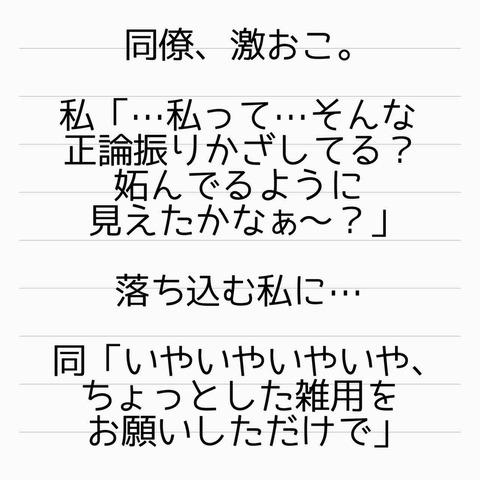 同僚、激おこ。
私「…私って…そんな
正論振りかざしてる？
妬んでるように
見えたかなぁ〜？」
落ち込む私に…
同「いやいやいやいや、
ちょっとした雑用を
お願いしただけで」